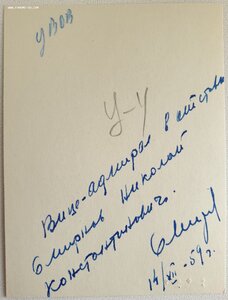 УВОВ
У-У
Вице-адмирал в отставке
Смирнов Николай
Константинович.
14/XII-59 г.